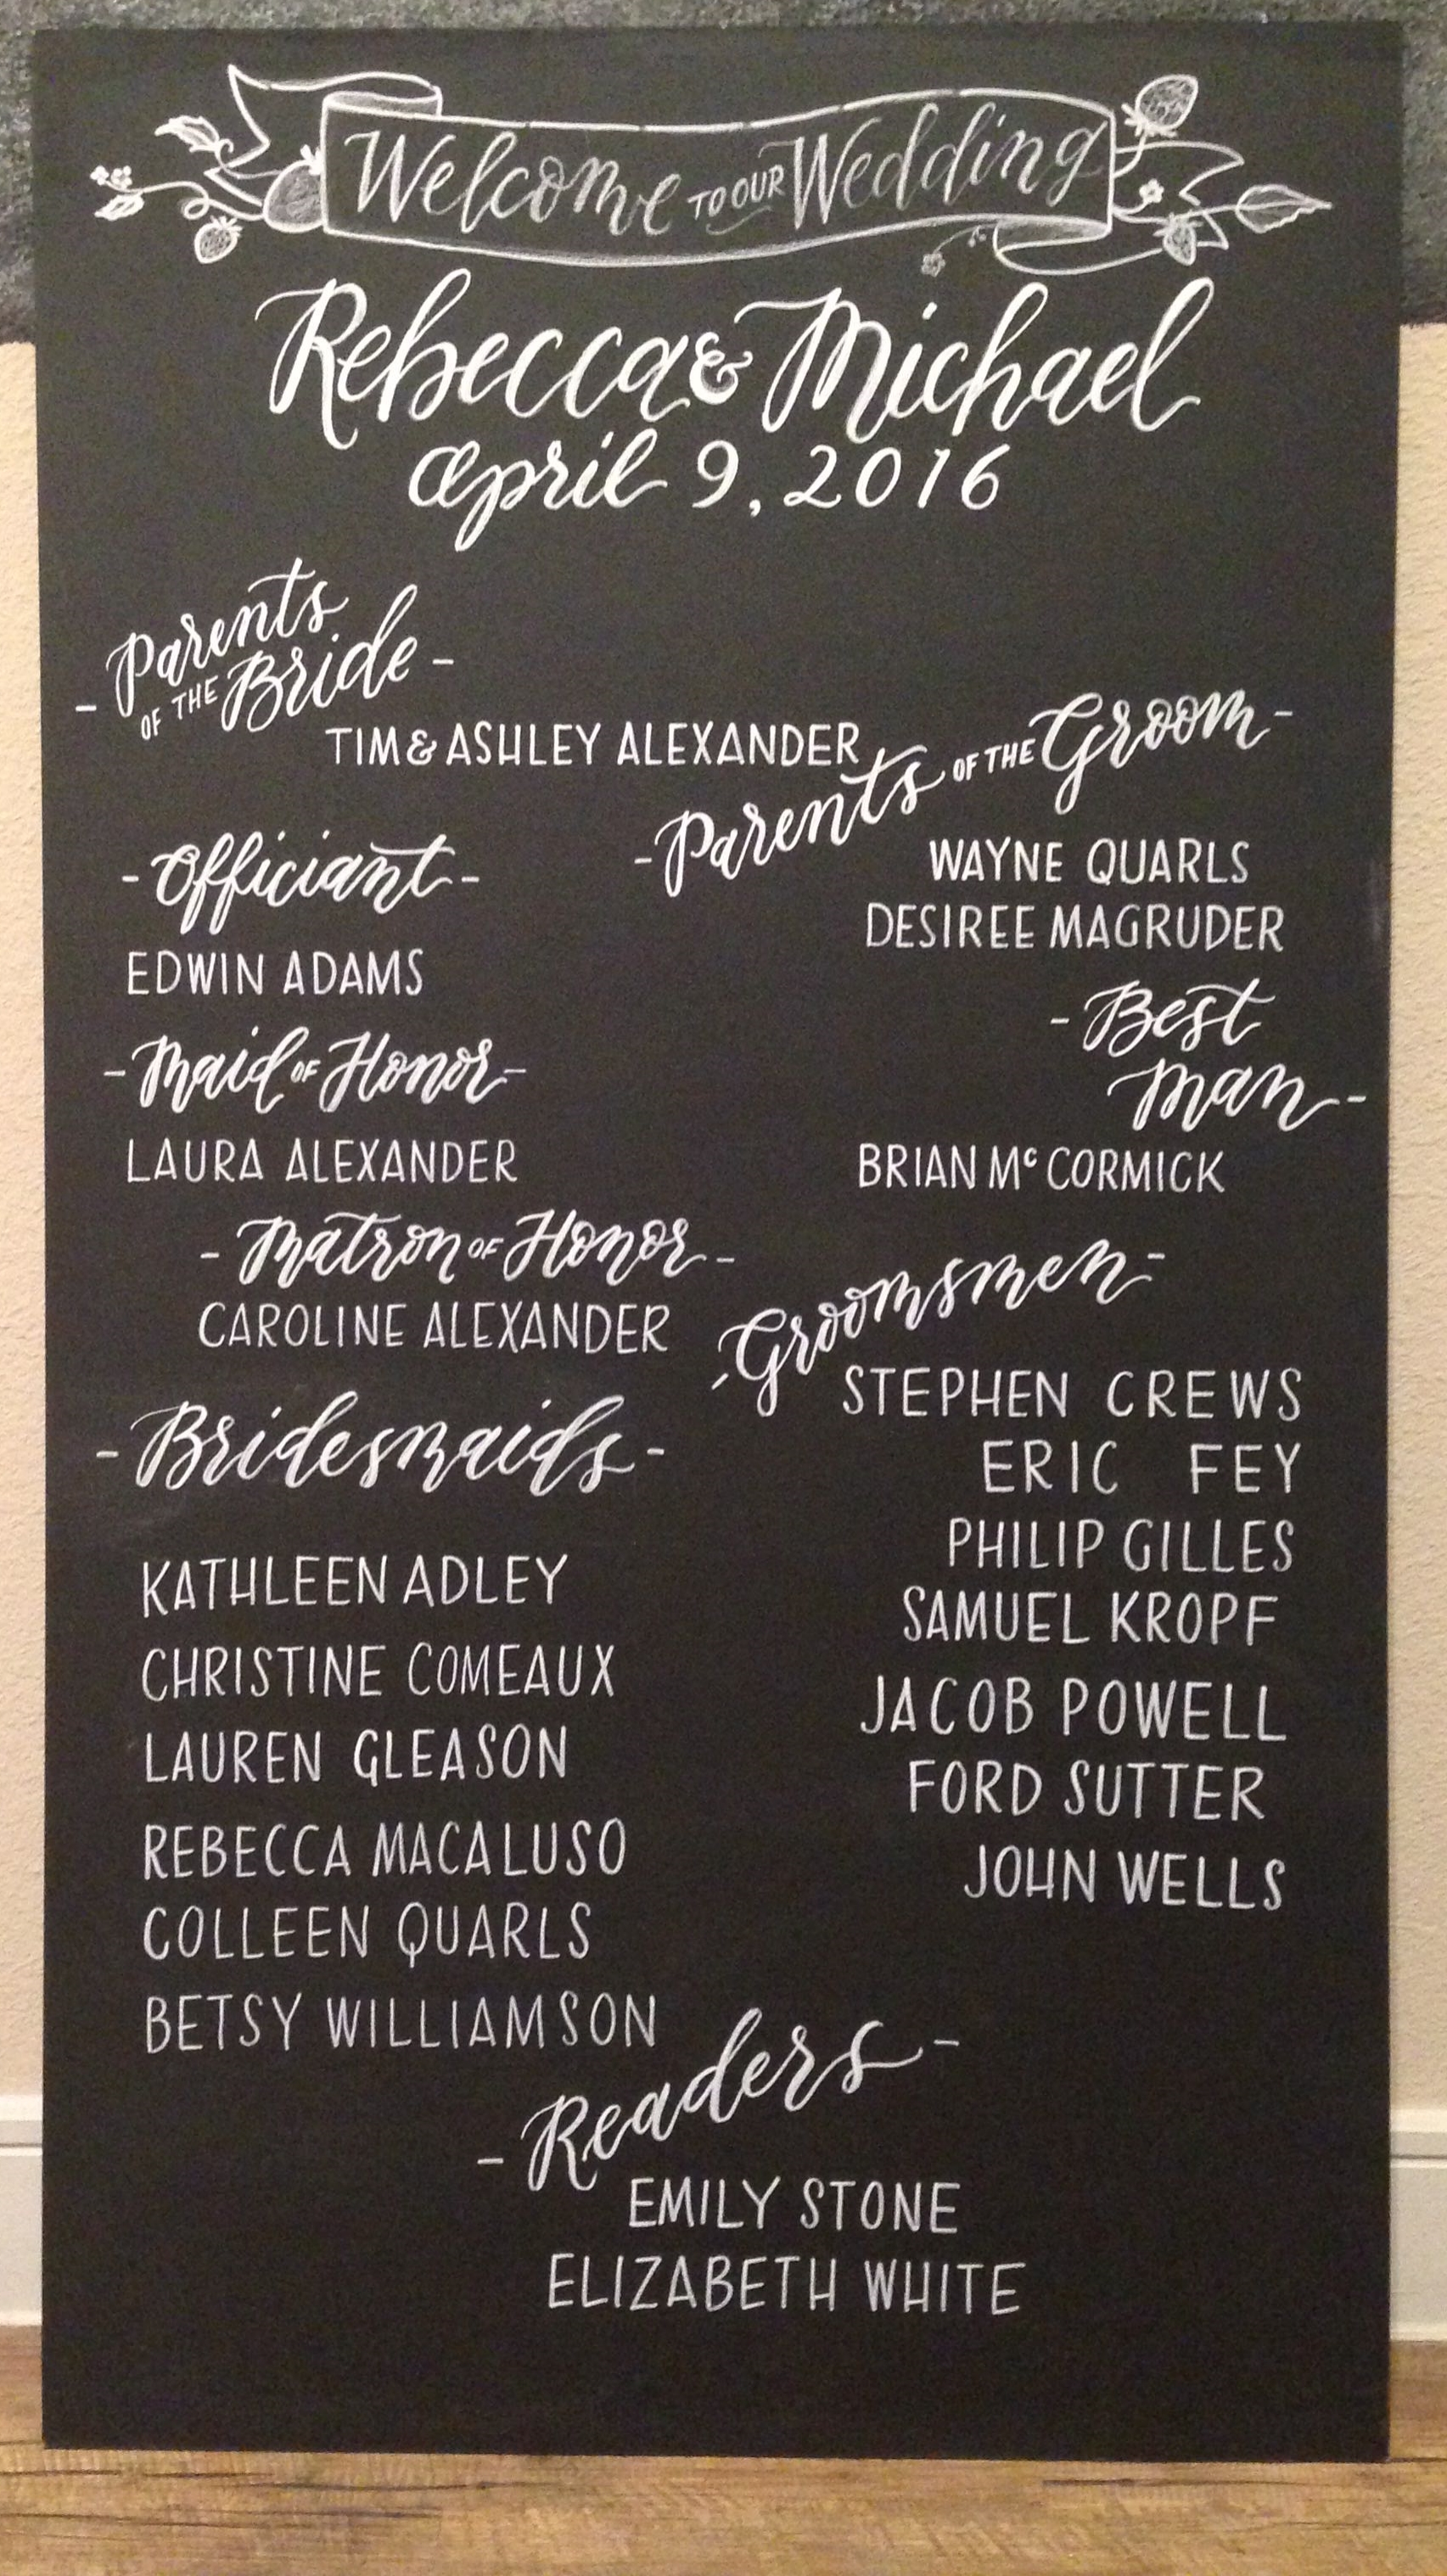 Welcome TO OUR Wedding
Rebecca & Michael
April 9, 2016
- Parents
OF THE Bride -
TIM & ASHLEY ALEXANDER
- Parents OF THE Groom -
WAYNE QUARLS
DESIREE MAGRUDER
- Officiant -
EDWIN ADAMS
- Best
Man -
BRIAN McCORMICK
- Maid OF Honor -
LAURA ALEXANDER
- Matron OF Honor -
CAROLINE ALEXANDER
- Groomsmen -
STEPHEN CREWS
ERIC FEY
PHILIP GILLES
SAMUEL KROPF
JACOB POWELL
FORD SUTTER
JOHN WELLS
- Bridesmaids -
KATHLEEN ADLEY
CHRISTINE COMEAUX
LAUREN GLEASON
REBECCA MACALUSO
COLLEEN QUARLS
BETSY WILLIAMSON
- Readers -
EMILY STONE
ELIZABETH WHITE